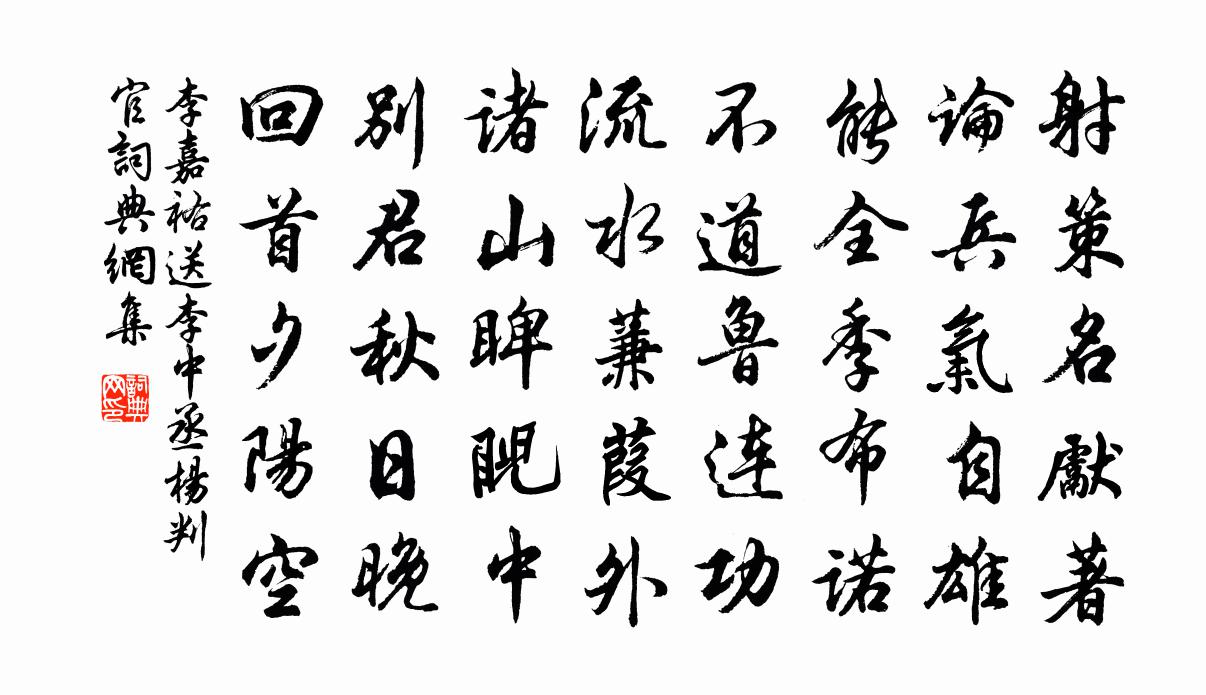 射策名獻著
論兵氣自雄
能全季布诺
不道魯连功
流水蒹葭外
诸山睥睨中
别君秋日晚
回首夕陽空
李嘉祐送李中丞楊判
官詞典網集
詞典网印